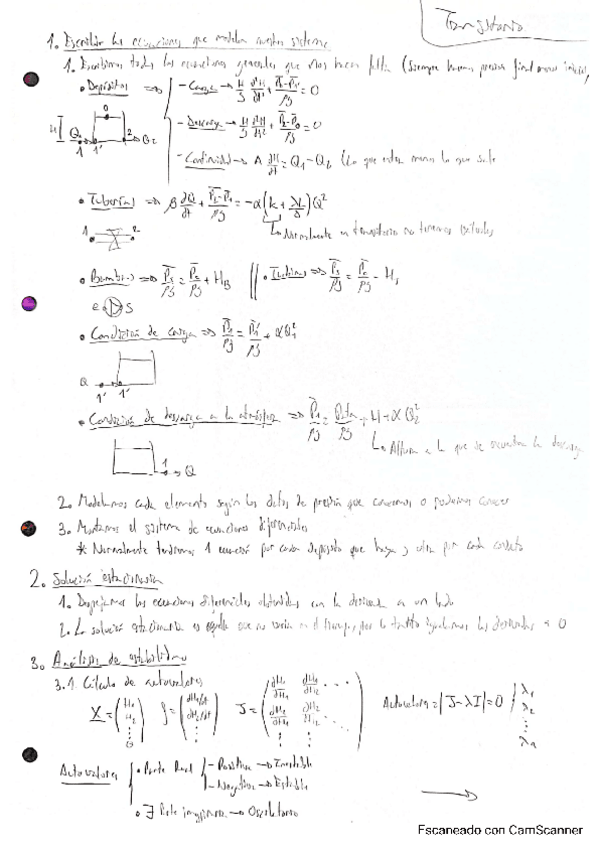 Transitorio
1. Escribir las ecuaciones que modelan nuestro sistema
1. Escribimos todas las ecuaciones generales que nos hacen falta (Siempre hacemos presión final menos inicial)
• Depósitos ⇒
- Carga →
= 0
- Descarga →
= 0
- Continuidad → A dH/dt = Q1 - Q2 (Lo que entra menos lo que sale
• Tuberías ⇒ β dQ/dt + (P2-P1)/ρg = -α(k + λL/D)Q²
Normalmente en transitorio no tenemos
• Bombas ⇒ Ps/ρg = Pe/ρg + HB || • Turbinas ⇒ Ps/ρg = Pe/ρg - Ht
e S
• Condición de carga ⇒ P1/ρg = P1'/ρg + αQ1²
Q 1' 1'
• Condición de descarga a la atmósfera ⇒ P1/ρg = Patm/ρg + H + αQ2²
Altura a la que se encuentra la descarga
1 Q
2. Modelamos cada elemento según los datos de presión que conocemos o podemos conocer
3. Montamos el sistema de ecuaciones diferenciales
* Normalmente tendremos 1 ecuación por cada depósito que haya y otra por cada conducto
2. Solución estacionaria
1. Despejamos las ecuaciones diferenciales obtenidas con la derivada a un lado
2. La solución estacionaria es aquella que no varía en el tiempo, por lo tanto igualamos las derivadas a 0
3. Análisis de estabilidad
3.1. Cálculo de autovalores
X = (H1 H2 ⋮ Q) f = (dH1/dt dH2/dt ⋮) J = Autovalores = |J - λI| = 0 λ1 λ2 ⋮ λn
Autovalores
• Parte Real
- Positiva → Inestable
- Negativa → Estable
• ∃ Parte imaginaria → Oscilatorio
Escaneado con CamScanner